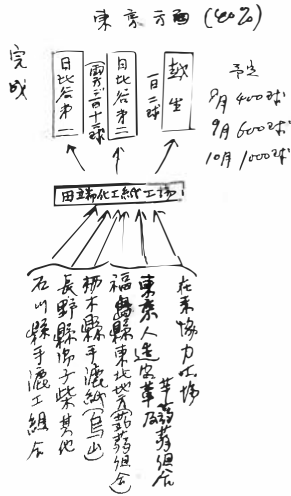 東京方面(40%)
完成
日比谷第一
(男子百十二球)
日比谷第二
一日二球
歌生
予定
8月 400球
9月 600球
10月 1000球
田端化工紙工場
在来協力工場
草蒟蒻組合
東京人造皮革及
福島縣東北地方(蒟蒻組合)
栃木縣手漉紙(烏山)
長野縣埆子柴其他
石川縣手漉工組合